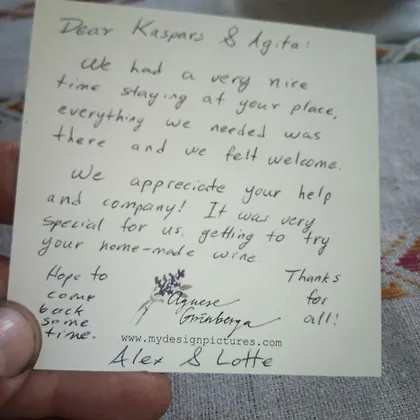 Dear Kaspars & Agita:
We had a very nice
time staying at your place,
everything we needed was
there and we felt welcome.
We appreciate your help
and company! It was very
special for us getting to try
your home-made wine.
Hope to
come
back
some
time.
Agnese
Grīnberga
Thanks
for
all!
www.mydesignpictures.com
Alex & Lotte